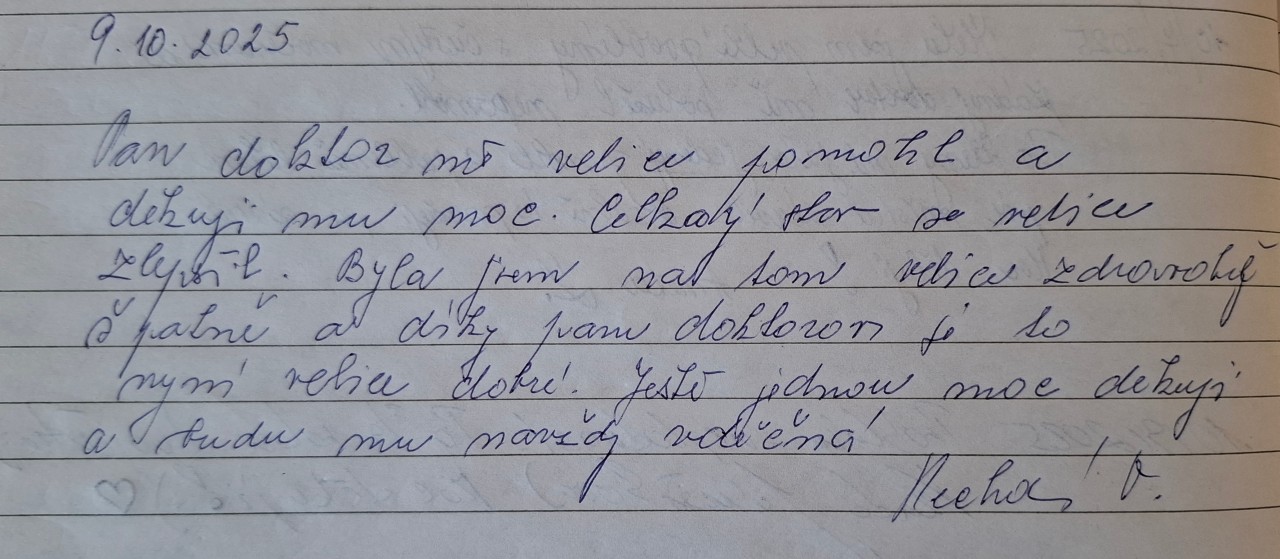 9.10.2025
Pan doktor mě velice pomohl a
děkuji mu moc. Celkový stav se velice
zlepšil. Byla jsem na tom velice zdravotně
špatně a díky panu doktorovi je to
nyní velice dobré. Ještě jednou moc děkuji
a budu mu navždy vděčná
V.